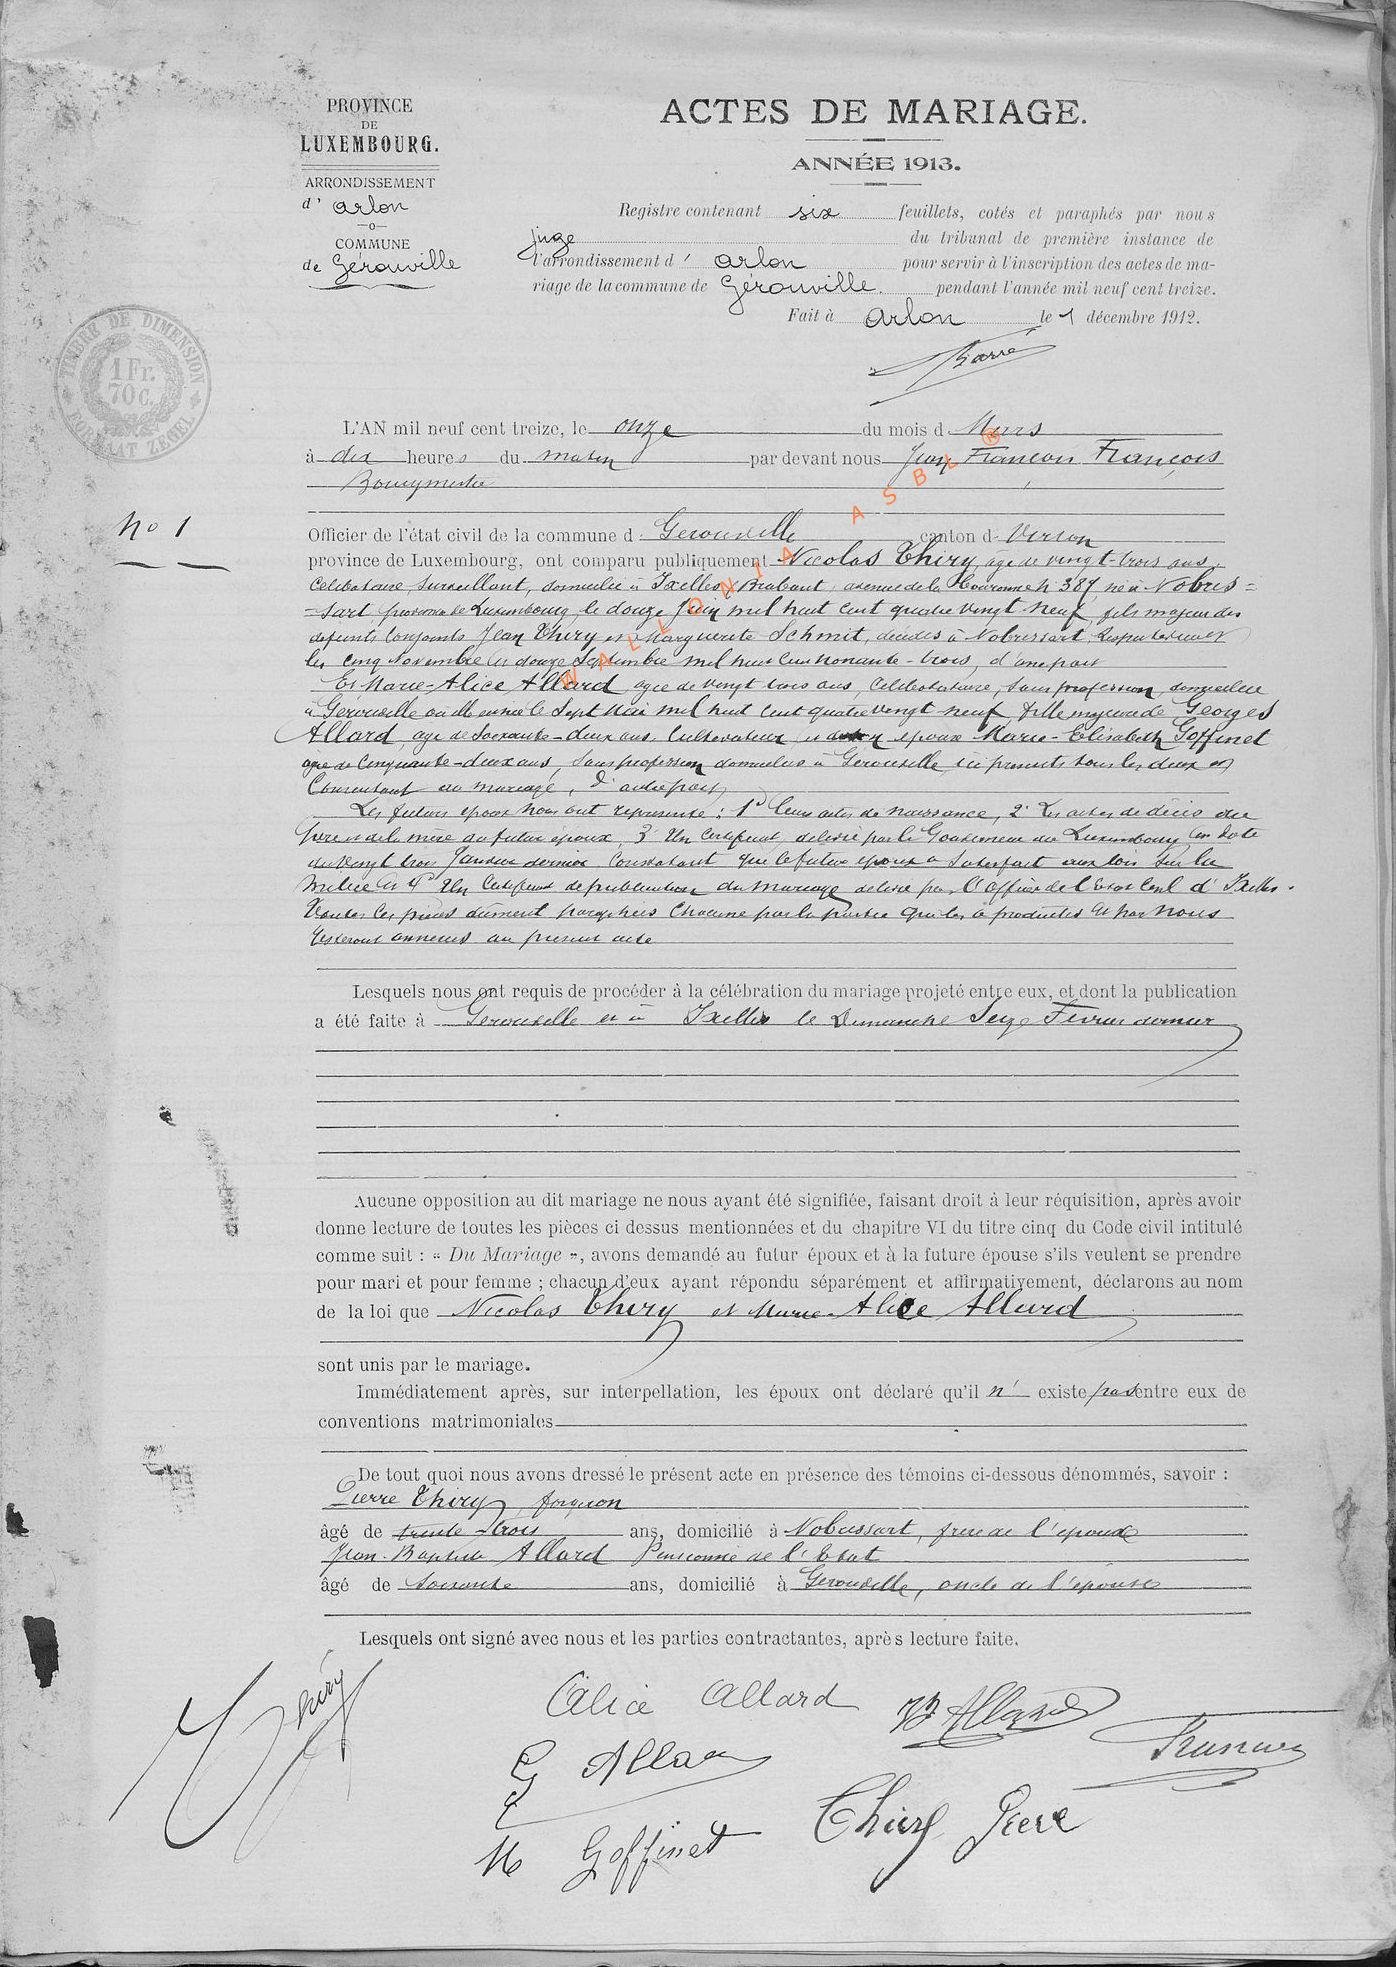 PROVINCE
DE
LUXEMBOURG.
ARRONDISSEMENT
d' Arlon
COMMUNE
de Gérouville
ACTES DE MARIAGE.
ANNÉE 1913.
Registre contenant six feuillets, cotés et paraphés par nous
juge du tribunal de première instance de
l'arrondissement d' Arlon pour servir à l'inscription des actes de ma-
riage de la commune de Gérouville. pendant l'année mil neuf cent treize.
Fait à Arlon le 1 décembre 1912.
Barré
TIMBRE DE DIMENSION
1 Fr.
70 C.
FORMAAT ZEGEL
L'AN mil neuf cent treize, le onze du mois d Mars
à dix heures du matin par devant nous Jean François François
Bourgmestre
No 1
Officier de l'état civil de la commune d Gerouville canton d Virton
province de Luxembourg, ont comparu publiquement Nicolas Thiry, âgé de vingt-trois ans,
Célibataire, Surveillant, domicilié à Ixelles, Brabant, avenue de la Couronne N 387, né à Nobres-
-sart province de Luxembourg, le douze Juin mil huit cent quatre vingt neuf, fils majeur des
défunts Conjoints Jean Thiry et Marguerite Schmit, décédés à Nobressart, respectivement
les cinq Novembre et douze Septembre mil huit cent nonante-trois, d'une part
Et Marie-Alice Allard agée de vingt trois ans, Célibataire, Sans profession, domiciliée
à Gerouville où elle est née le Sept Mai mil huit cent quatre vingt neuf fille majeure de Georges
Allard, agé de Soixante-deux ans, Cultivateur, et époux Marie-Elisabeth Goffinet
agée de Cinquante-deux ans, Sans profession domiciliés à Gerouville, ici présents tous les deux et
Consentant au mariage, d'autre part
Les futurs époux nous ont représenté : 1° leurs actes de naissance, 2° Les actes de décès du
père et de la mère du futur époux, 3° Un Certificat, délivré par le Gouverneur du Luxembourg en date
du vingt trois Janvier dernier Constatant que le futur époux a Satisfait aux lois sur la
milice et 4° Un Certificat de publication du mariage délivré par l'officier de l'Etat Civil d'Ixelles.
Toutes ces pièces dûment paraphées chacune par la partie qui les a produites et par nous
resteront annexées au présent acte
Lesquels nous ont requis de procéder à la célébration du mariage projeté entre eux, et dont la publication
a été faite à Gerouville et à Ixelles le Dimanche Seize Février dernier
Aucune opposition au dit mariage ne nous ayant été signifiée, faisant droit à leur réquisition, après avoir
donne lecture de toutes les pièces ci dessus mentionnées et du chapitre VI du titre cinq du Code civil intitulé
comme suit : « Du Mariage », avons demandé au futur époux et à la future épouse s'ils veulent se prendre
pour mari et pour femme ; chacun d'eux ayant répondu séparément et affirmativement, déclarons au nom
de la loi que Nicolas Thiry et Marie-Alice Allard
sont unis par le mariage.
Immédiatement après, sur interpellation, les époux ont déclaré qu'il n' existe pas entre eux de
conventions matrimoniales
De tout quoi nous avons dressé le présent acte en présence des témoins ci-dessous dénommés, savoir :
Pierre Thiry, forgeron
âgé de trente-trois ans, domicilié à Nobressart, frère de l'époux
Jean-Baptiste Allard Pensionné de l'Etat
âgé de Soixante ans, domicilié à Gerouville, oncle de l'épouse
Lesquels ont signé avec nous et les parties contractantes, après lecture faite.
Thiry
Alice Allard
JB Allard
G Allard
François
Thiry Pierre
M Goffinet
WALLONIA ASBL ®